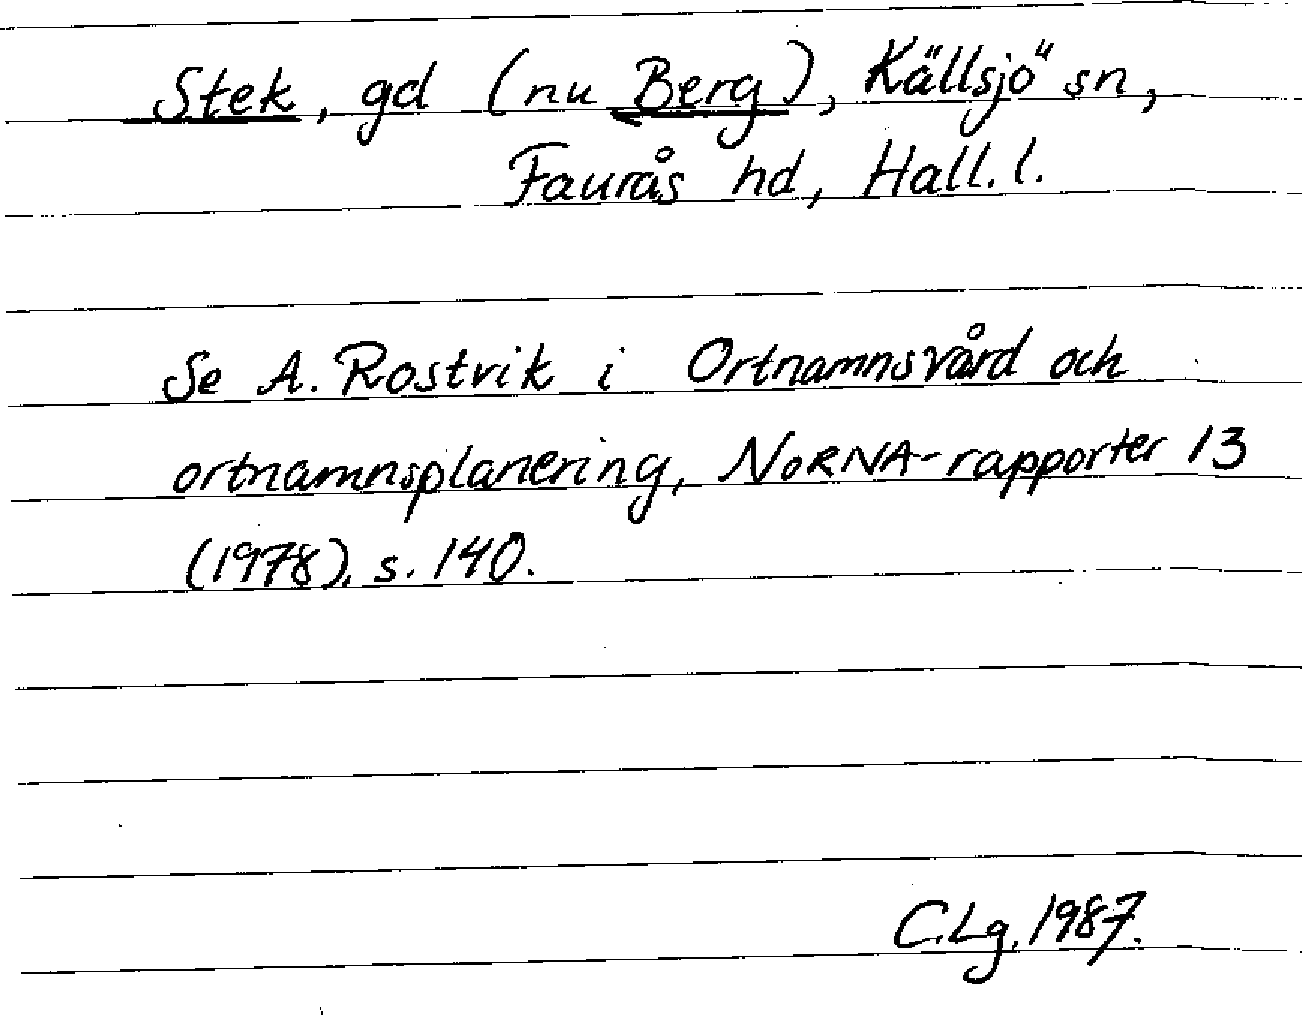 Stek, gd (nu Berg), Källsjö sn,
Faurås hd, Hall. l.
Se A. Rostvik i Ortnamnsvård och
ortnamnsplanering, NORNA-rapporter 13
(1978), s. 140.
C.Lg. 1987.